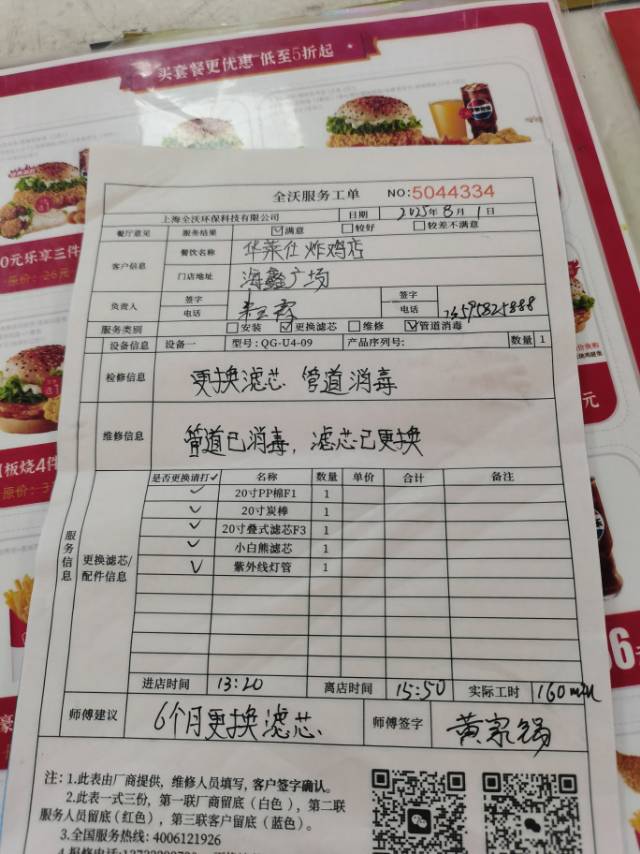 买套餐更优惠 低至5折起
0元乐享三件
原价：26元
板烧4件
全沃服务工单 NO:5044334
上海全沃环保科技有限公司 日期 2025年8月1日
餐厅意见 服务结果 ☑满意 □较好 □较差不满意
客户信息 餐饮名称 华莱仕炸鸡店
门店地址 海鑫广场
负责人 签字 电话 签字 电话
服务类别 □安装 ☑更换滤芯 □维修 ☑管道消毒
设备信息 设备一 型号:QG-U4-09 产品序列号: 数量 1
检修信息 更换滤芯 管道消毒
维修信息 管道已消毒，滤芯已更换
服务信息 更换滤芯/配件信息
是否更换请打✓ 名称 数量 单价 合计 备注
✓ 20寸PP棉F1 1
✓ 20寸炭棒 1
✓ 20寸叠式滤芯F3 1
✓ 小白熊滤芯 1
✓ 紫外线灯管 1
进店时间 13:20 离店时间 15:50 实际工时 160min
师傅建议 6个月更换滤芯 师傅签字
注: 1.此表由厂商提供，维修人员填写，客户签字确认。
2.此表一式三份，第一联厂商留底(白色)，第二联
服务人员留底(红色)，第三联客户留底(蓝色)。
3.全国服务热线: 4006121926